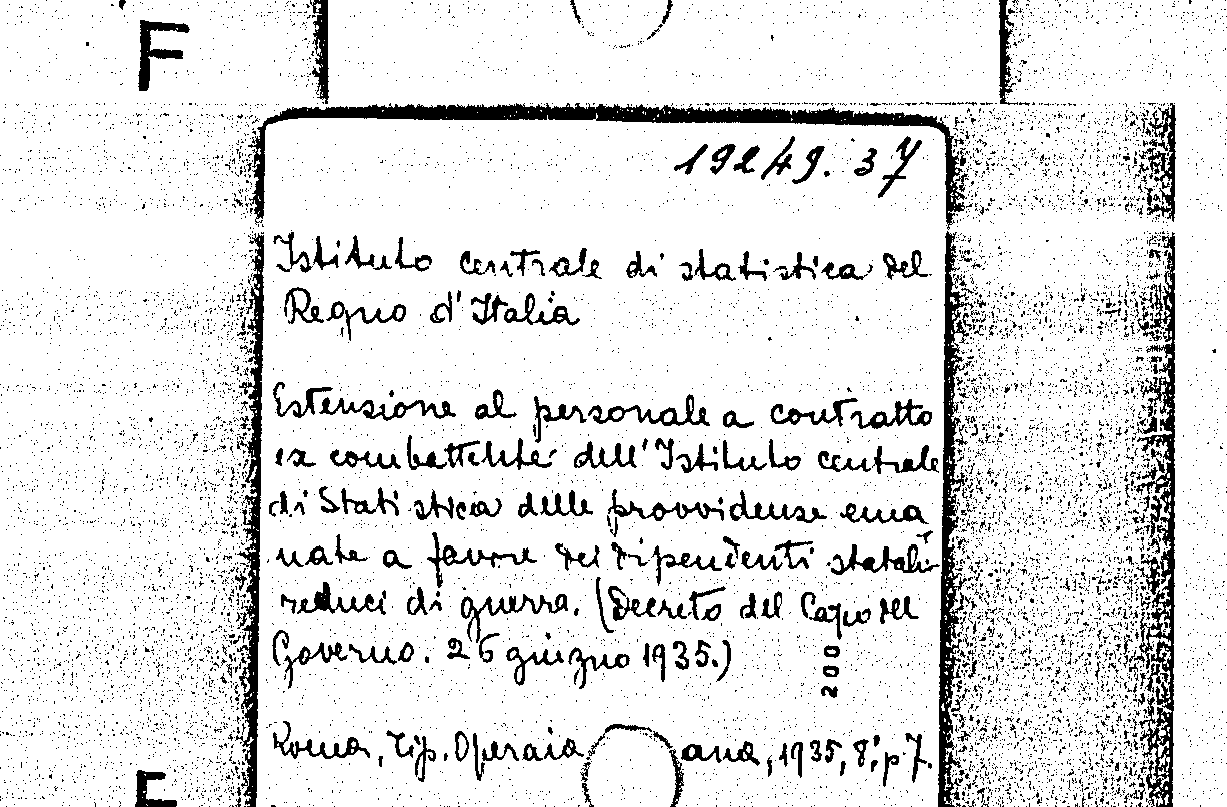 F
19249.37
Istituto centrale di statistica del
Regno d'Italia
Estensione al personale a contratto
ex combattente dell'Istituto centrale
di Statistica delle provvidenze ema
nate a favore dei dipendenti statali
reduci di guerra. (Decreto del Capo del
Governo. 26 giugno 1935.)
200
Roma, Tip. Operaia ana, 1935, 8°, p 7.
F